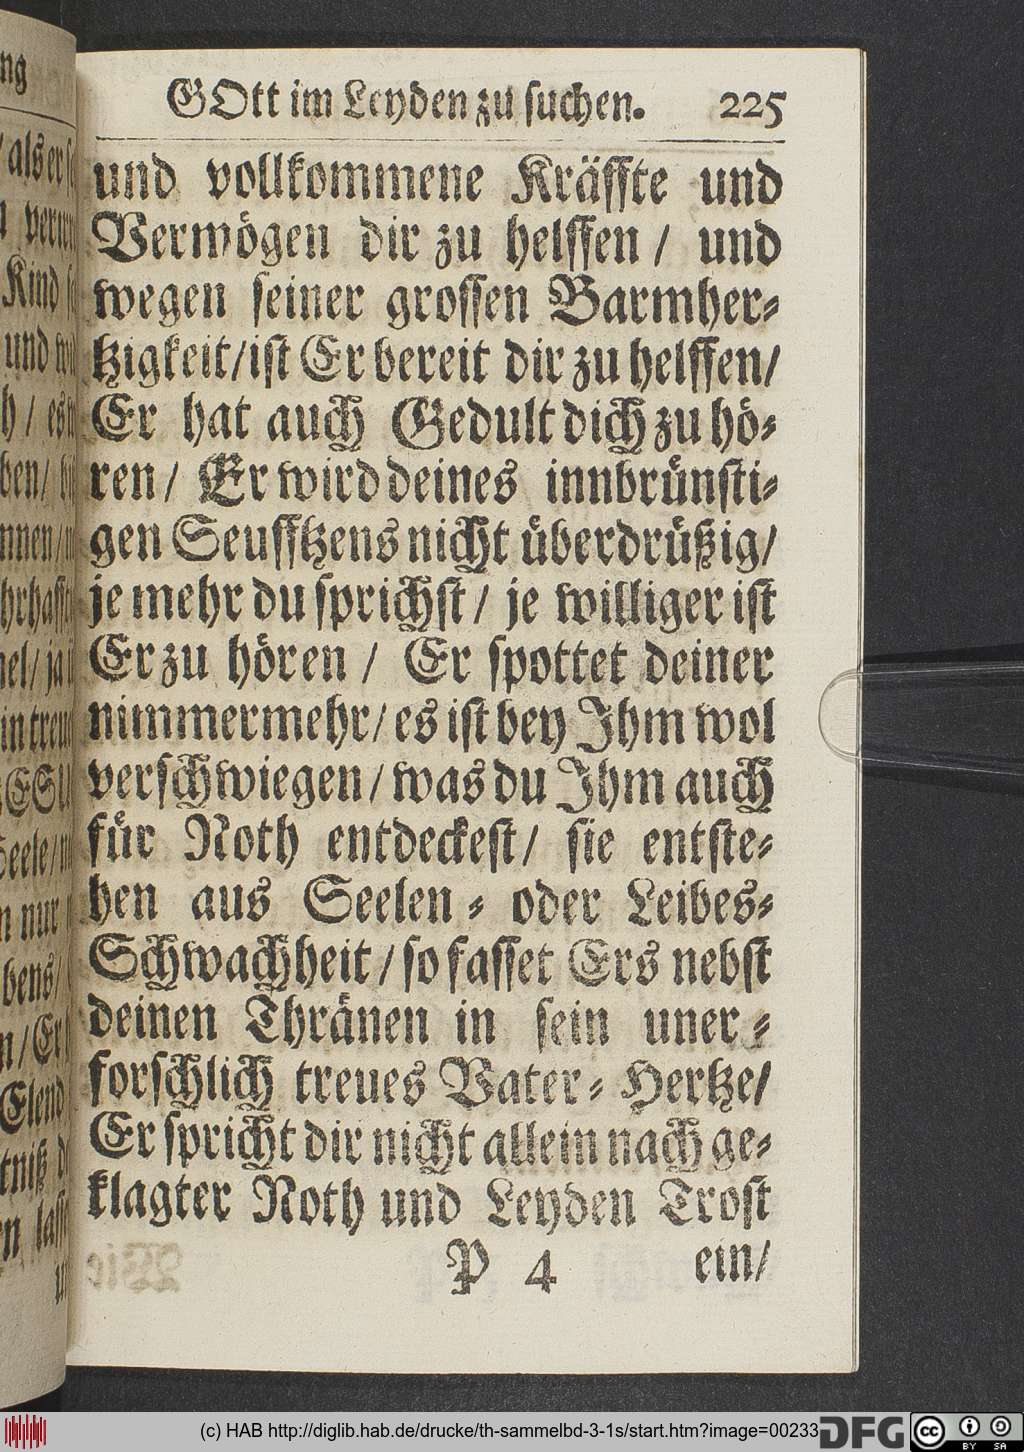 GOtt im Leyden zu suchen. 225
und vollkommene Kräffte und
Vermögen dir zu helffen / und
wegen seiner grossen Barmher-
tzigkeit/ist Er bereit dir zu helffen/
Er hat auch Gedult dich zu hö-
ren / Er wird deines innbrünsti-
gen Seufftzens nicht überdrüßig/
je mehr du sprichst / je williger ist
Er zu hören / Er spottet deiner
nimmermehr/ es ist bey Ihm wol
verschwiegen / was du Ihm auch
für Noth entdeckest / sie entste-
hen aus Seelen- oder Leibes-
Schwachheit / so fasset Ers nebst
deinen Thränen in sein uner-
forschlich treues Vater-Hertze/
Er spricht dir nicht allein nach ge-
klagter Noth und Leyden Trost
P 4 ein/
ng
/ als er
Kind
und
h / es
ben/
nnen/
nel/ ja
ESU
Seele/
n nur
bens/
n / Er
Elend
tniß
(c) HAB http://diglib.hab.de/drucke/th-sammelbd-3-1s/start.htm?image=00233
DFG
cc
BY SA